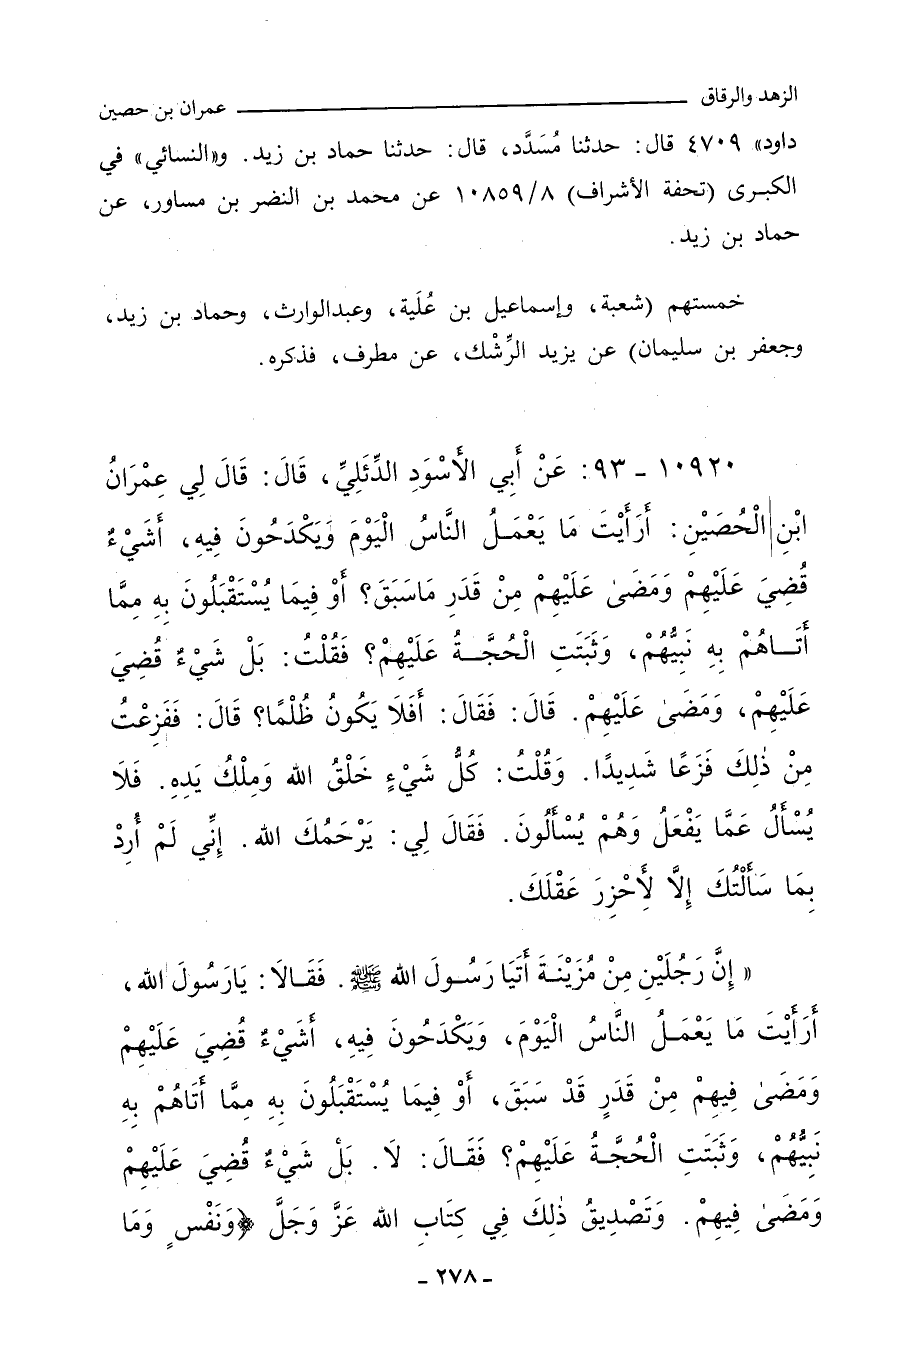 الزهد والرقاق ــــــــــــــــــــ عمران بن حصين
داود» ٤٧٠٩ قال: حدثنا مُسَدَّد، قال: حدثنا حماد بن زيد. و«النسائي» في
الكبرى (تحفة الأشراف) ١٠٨٥٩/٨ عن محمد بن النضر بن مساور، عن
حماد بن زيد.
خمستهم (شعبة، وإسماعيل بن عُلَية، وعبدالوارث، وحماد بن زيد،
وجعفر بن سليمان) عن يزيد الرِّشْك، عن مطرف، فذكره.
١٠٩٢٠ - ٩٣: عَنْ أَبِي الأَسْوَدِ الدِّئَلِيِّ، قَالَ: قَالَ لِي عِمْرَانُ
ابْنِ الْحُصَيْنِ: أَرَأَيْتَ مَا يَعْمَلُ النَّاسُ الْيَوْمَ وَيَكْدَحُونَ فِيهِ، أَشَيْءٌ
قُضِيَ عَلَيْهِمْ وَمَضَىٰ عَلَيْهِمْ مِنْ قَدَرِ مَاسَبَقَ؟ أَوْ فِيمَا يُسْتَقْبَلُونَ بِهِ مِمَّا
أَتَـاهُمْ بِهِ نَبِيُّهُمْ، وَثَبَتَتِ الْحُجَّـةُ عَلَيْهِمْ؟ فَقُلْتُ: بَلْ شَيْءٌ قُضِيَ
عَلَيْهِمْ، وَمَضَىٰ عَلَيْهِمْ. قَالَ: فَقَالَ: أَفَلَا يَكُونُ ظُلْمًا؟ قَالَ: فَفَزِعْتُ
مِنْ ذٰلِكَ فَزَعًا شَدِيدًا. وَقُلْتُ: كُلُّ شَيْءٍ خَلْقُ الله وَمِلْكُ يَدِهِ. فَلَا
يُسْأَلُ عَمَّا يَفْعَلُ وَهُمْ يُسْأَلُونَ. فَقَالَ لِي: يَرْحَمُكَ الله. إِنِّي لَمْ أُرِدْ
بِمَا سَأَلْتُكَ إِلَّا لِأَحْزِرَ عَقْلَكَ.
« إِنَّ رَجُلَيْنِ مِنْ مُزَيْنَةَ أَتَيَا رَسُـولَ الله ﷺ. فَقَالَا: يَارَسُولَ الله،
أَرَأَيْتَ مَا يَعْمَـلُ النَّاسُ الْيَوْمَ، وَيَكْدَحُونَ فِيهِ، أَشَيْءٌ قُضِيَ عَلَيْهِمْ
وَمَضَىٰ فِيهِمْ مِنْ قَدَرٍ قَدْ سَبَقَ، أَوْ فِيمَا يُسْتَقْبَلُونَ بِهِ مِمَّا أَتَاهُمْ بِهِ
نَبِيُّهُمْ، وَثَبَتَتِ الْحُجَّـةُ عَلَيْهِمْ؟ فَقَـالَ: لَا. بَلْ شَيْءٌ قُضِيَ عَلَيْهِمْ
وَمَضَىٰ فِيهِمْ. وَتَصْدِيقُ ذٰلِكَ فِي كِتَابِ الله عَزَّ وَجَلَّ ﴿وَنَفْسٍ وَمَا
- ٢٧٨ -